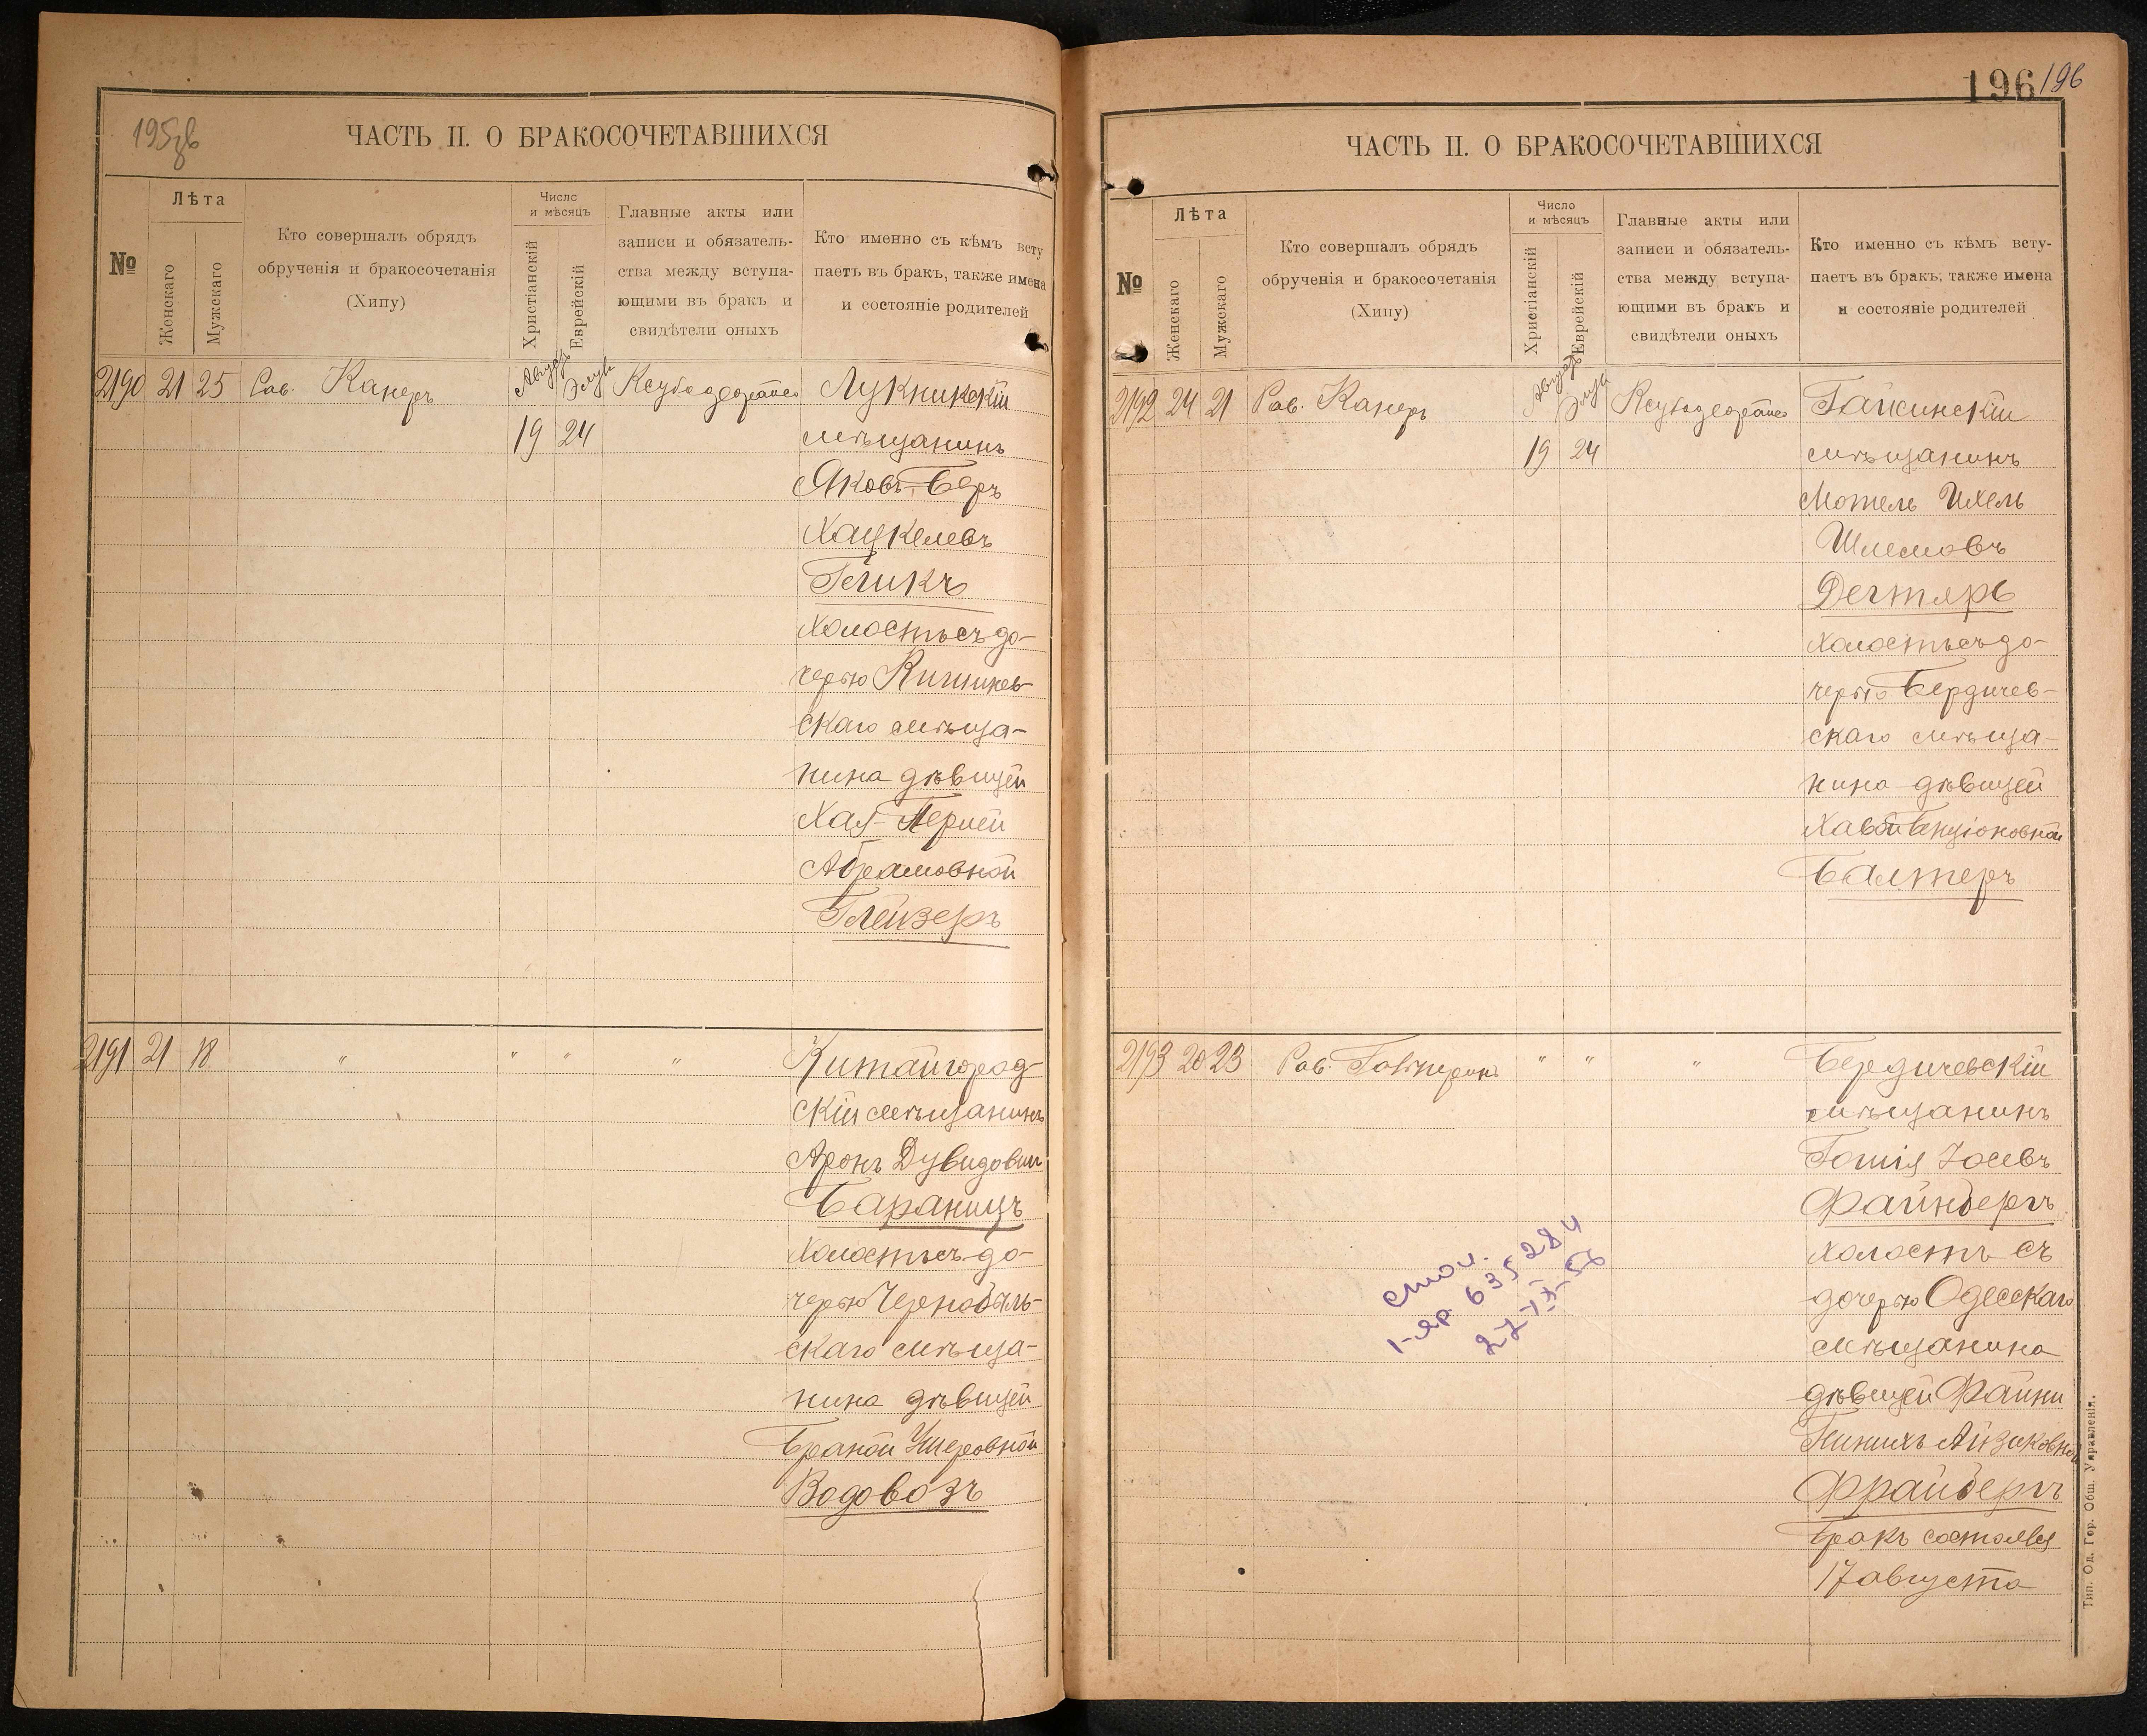 195зв
ЧАСТЬ II. О БРАКОСОЧЕТАВШИХСЯ
№
Лѣта
Женскаго
Мужскаго
Кто совершалъ обрядъ
обрученія и бракосочетанія
(Хипу)
Число
и мѣсяцъ
Христіанскій
Еврейскій
Главные акты или
записи и обязатель-
ства между вступа-
ющими въ бракъ и
свидѣтели оныхъ
Кто именно съ кѣмъ всту
паетъ въ бракъ, также имена
и состояніе родителей
2190 21 25 Рав. Канеръ Августъ Элуи Лукникскій
19 24 мѣщанинъ
Яковъ-Беръ
Хацкелевъ
Гликъ
холостъ съ до-
черью Кишинев-
скаго мѣща-
нина дѣвицей
Хая-Перлей
Абрамовной
Глейзеръ
2191 21 18 " " " " Китайгород-
скій мѣщанинъ
Аронъ Дувидович
Бараницъ
холостъ съ до-
черью Чернобыль-
скаго мѣща-
нина дѣвицей
Браной Ушеровной
Водовозъ
196 196
ЧАСТЬ II. О БРАКОСОЧЕТАВШИХСЯ
№
Лѣта
Женскаго
Мужскаго
Кто совершалъ обрядъ
обрученія и бракосочетанія
(Хипу)
Число
и мѣсяцъ
Христіанскій
Еврейскій
Главные акты или
записи и обязатель-
ства между вступа-
ющими въ бракъ и
свидѣтели оныхъ
Кто именно съ кѣмъ всту-
паетъ въ бракъ, также имена
и состояніе родителей
2192 24 21 Рав. Канеръ Августъ Элуи Гайсинскій
19 24 мѣщанинъ
Мотель Ихель
Шлемовъ
Дегтярь
холостъ съ до-
черью Бердичев-
скаго мѣща-
нина дѣвицей
Хавой Бенціоновной
Балтеръ
2193 20 23 Рав. Гальперинъ " " " Бердичевскій
мѣщанинъ
Іосевъ
Файнбергъ
холостъ съ
дочерью Одесскаго
мѣщанина
дѣвицей Файни
Айзиковной
Фрайбергъ
Бракъ состоялся
17 августа
1-яр. 635284
Тип. Од. Гор. Общ. Управленія.